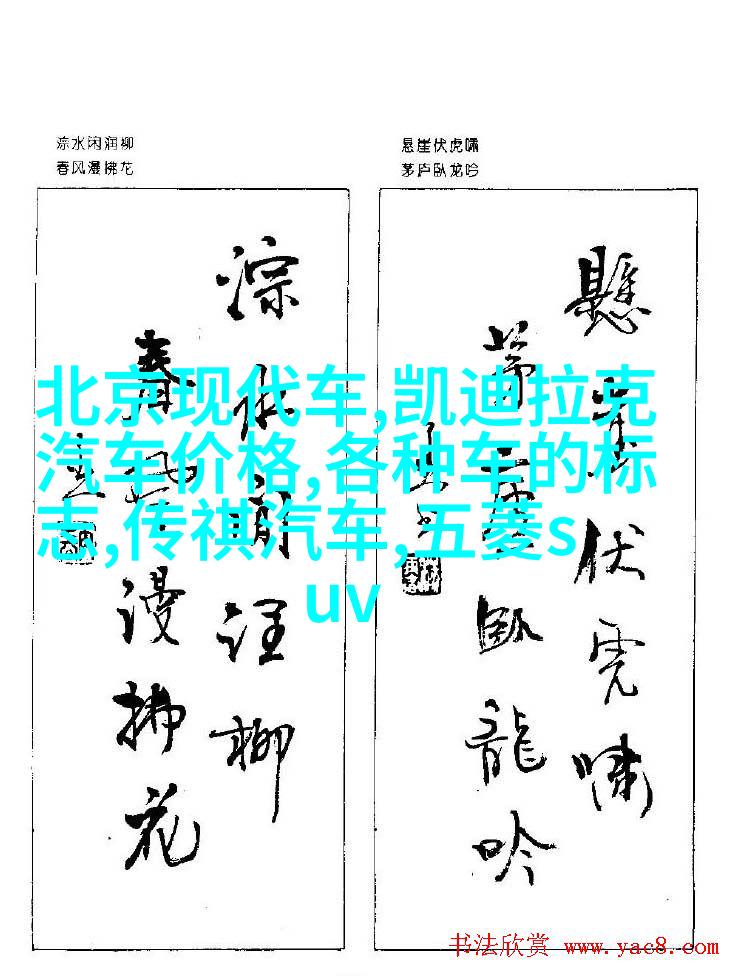 淙水闲润柳
春风漫拂花
悬崖伏虎啸
茅庐卧龙吟
懸崖伏虎嘯
茅廬臥龍吟
淙水閒润柳
春风漫拂花
北京现代车,凯迪拉克
汽车价格,各种车的标
志,传祺汽车,五菱s
uv
书法欣赏 www.yac8.com